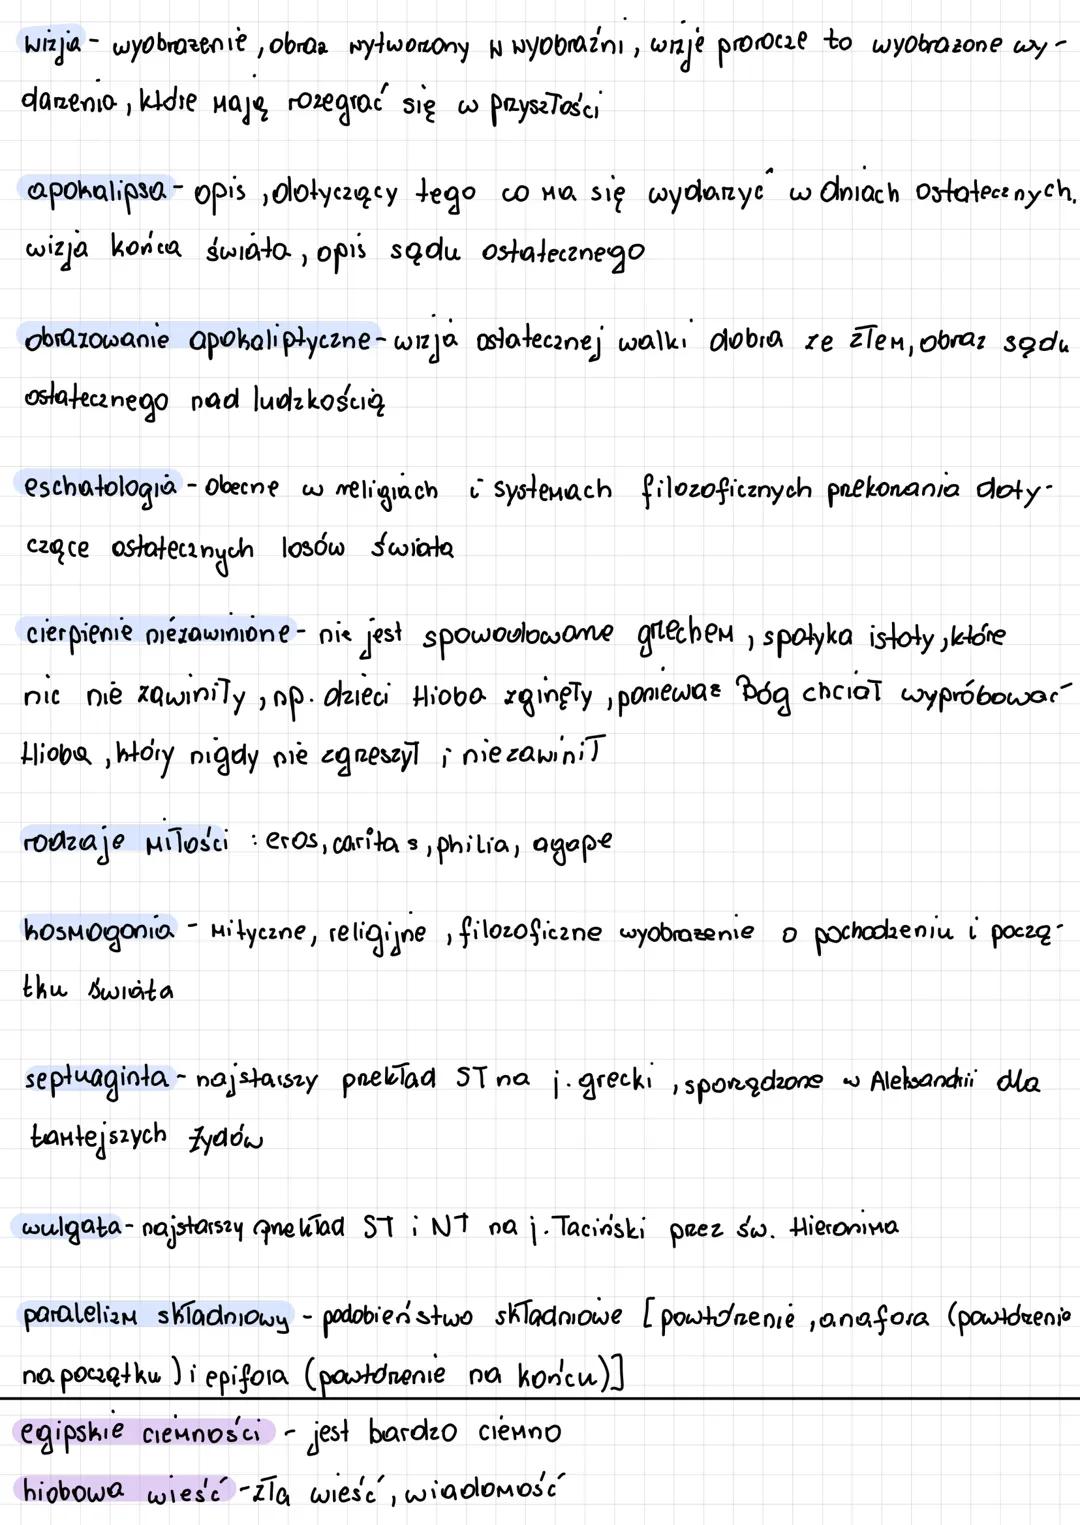 wizja - wyobrażenie, obraz wytworzony w wyobraźni, wizje prorocze to wyobrażone wy-
darzenia, które mają rozegrać się w przyszłości
apokalipsa - opis, dotyczący tego co ma się wydarzyć w dniach ostatecznych,
wizja końca świata, opis sądu ostatecznego
obrazowanie apokaliptyczne - wizja ostatecznej walki dobra ze złem, obraz sądu
ostatecznego nad ludzkością
eschatologia - obecne w religiach i systemach filozoficznych przekonania doty-
czące ostatecznych losów świata
cierpienie niezawinione - nie jest spowodowane grzechem, spotyka istoty, które
nic nie zawiniły, np. dzieci Hioba zginęły, ponieważ Bóg chciał wypróbować
Hioba, który nigdy nie zgrzeszył i nie zawinił
rodzaje miłości : eros, caritas, philia, agape
kosmogonia - mityczne, religijne, filozoficzne wyobrażenie o pochodzeniu i począ-
tku świata
septuaginta - najstarszy przekład ST na j. grecki, sporządzone w Aleksandrii dla
tamtejszych Żydów
wulgata - najstarszy przekład ST i NT na j. łaciński przez św. Hieronima
paralelizm składniowy - podobieństwo składniowe [powtórzenie, anafora (powtórzenie
na początku) i epifora (powtórzenie na końcu)]
egipskie ciemności - jest bardzo ciemno
hiobowa wieść - zła wieść, wiadomość